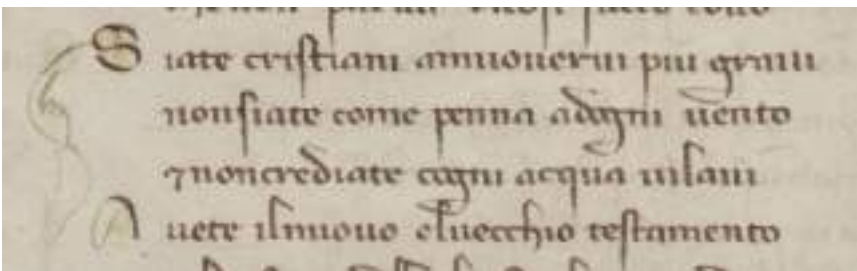 Siate cristiani amuoverui piu graui
non siate come penna adogni uento
⁊ non crediate cogni acqua uilaui
Auete ilnuouo eluecchio testamento